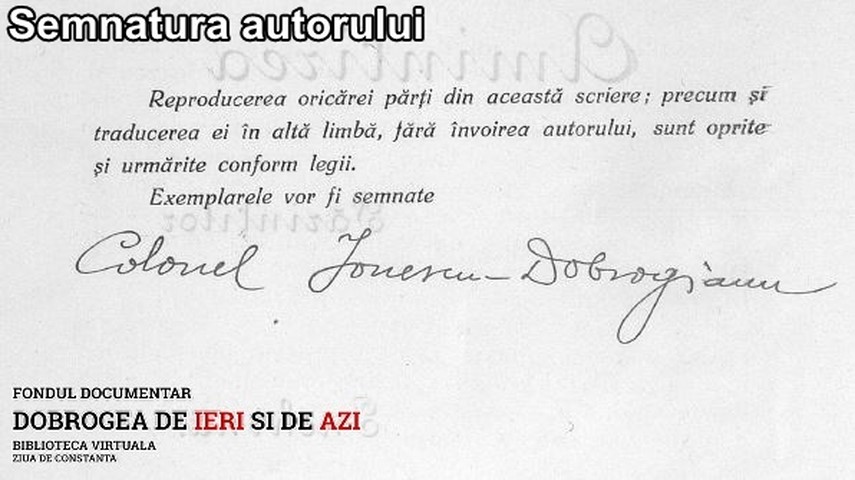 Semnatura autorului
Amintirea
Reproducerea oricărei părți din această scriere; precum și
traducerea ei în altă limbă, fără învoirea autorului, sunt oprite
și urmărite conform legii.
Exemplarele vor fi semnate
Părinților
Colonel Ionescu-Dobrogianu
FONDUL DOCUMENTAR
DOBROGEA DE IERI SI DE AZI
BIBLIOTECA VIRTUALA
ZIUA DE CONSTANTA